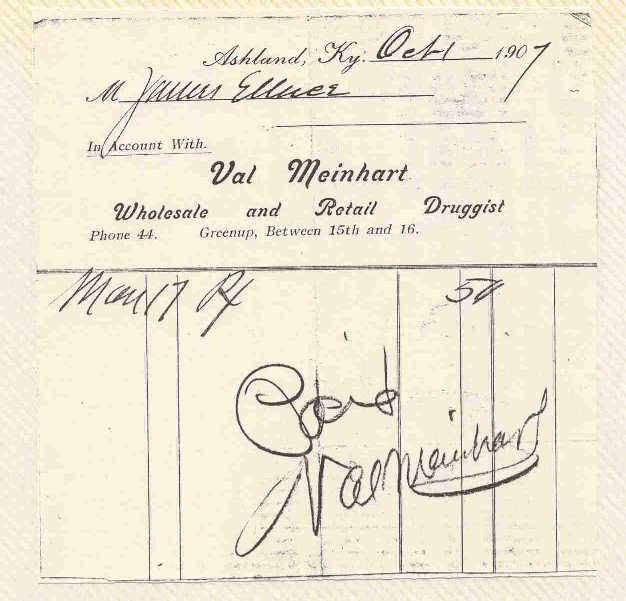 Ashland, Ky. Oct 1 1907
M James Ellnee
In Account With.
Val Meinhart
Wholesale and Retail Druggist
Phone 44. Greenup, Between 15th and 16.
May 17 Rx 50
Paid
Val Meinhart